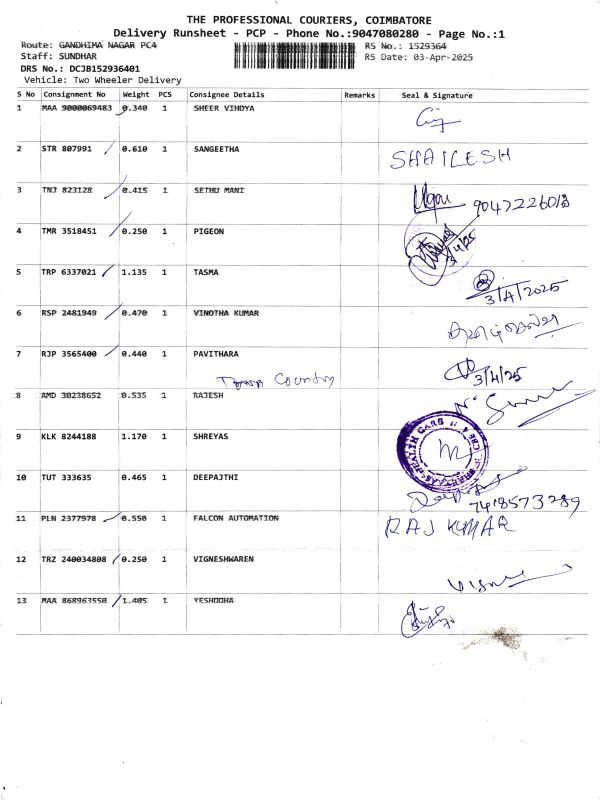 THE PROFESSIONAL COURIERS, COIMBATORE
Delivery Runsheet - PCP - Phone No.:9047080280 - Page No.:1
Route: GANDHIMA NAGAR PC4 RS No.: 1529364
Staff: SUNDHAR RS Date: 03-Apr-2025
DRS No.: DCJB152936401
Vehicle: Two Wheeler Delivery
S No Consignment No Weight PCS Consignee Details Remarks Seal & Signature
1 MAA 9000069483 0.340 1 SHEER VIHDYA
2 STR 807991 0.610 1 SANGEETHA SHAILESH
3 TNJ 823128 0.415 1 SETHU MANI
4 TMR 3518451 0.250 1 PIGEON 3/4/25
5 TRP 6337021 1.135 1 TASMA 3/4/2025
6 RSP 2481949 0.470 1 VINOTHA KUMAR
7 RJP 3565400 0.440 1 PAVITHARA 3/4/25
Country
8 AMD 30238652 0.535 1 RAJESH
9 KLK 8244188 1.170 1 SHREYAS
10 TUT 333635 0.465 1 DEEPAJTHI 7418573289
11 PLN 2377978 0.550 1 FALCON AUTOMATION RAJ KUMAR
12 TRZ 240034808 0.250 1 VIGNESHWAREN
13 MAA 868963550 1.405 1 YESHODHA